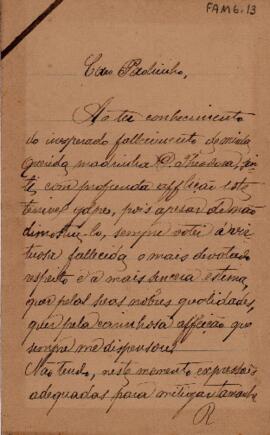 FAM6.13
Caro Padrinho,
Ao ter conhecimento
do inesperado fallecimento de minha
querida madrinha D. Theodora, sen-
ti, com profunda afflicção este
terrivel golpe, pois apesar de não
demostral-o, sempre votei á vir-
tuosa fallecida o mais devotado
respeito e a mais sincera estima,
quer pelas suas nobres qualidades,
quer pela carinhosa affeição que
sempre me dispensou.
Não tendo, neste momento expressões
adequadas para mitigar tamanha